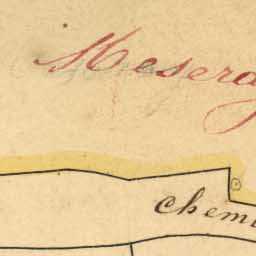 Mesera
Chemi